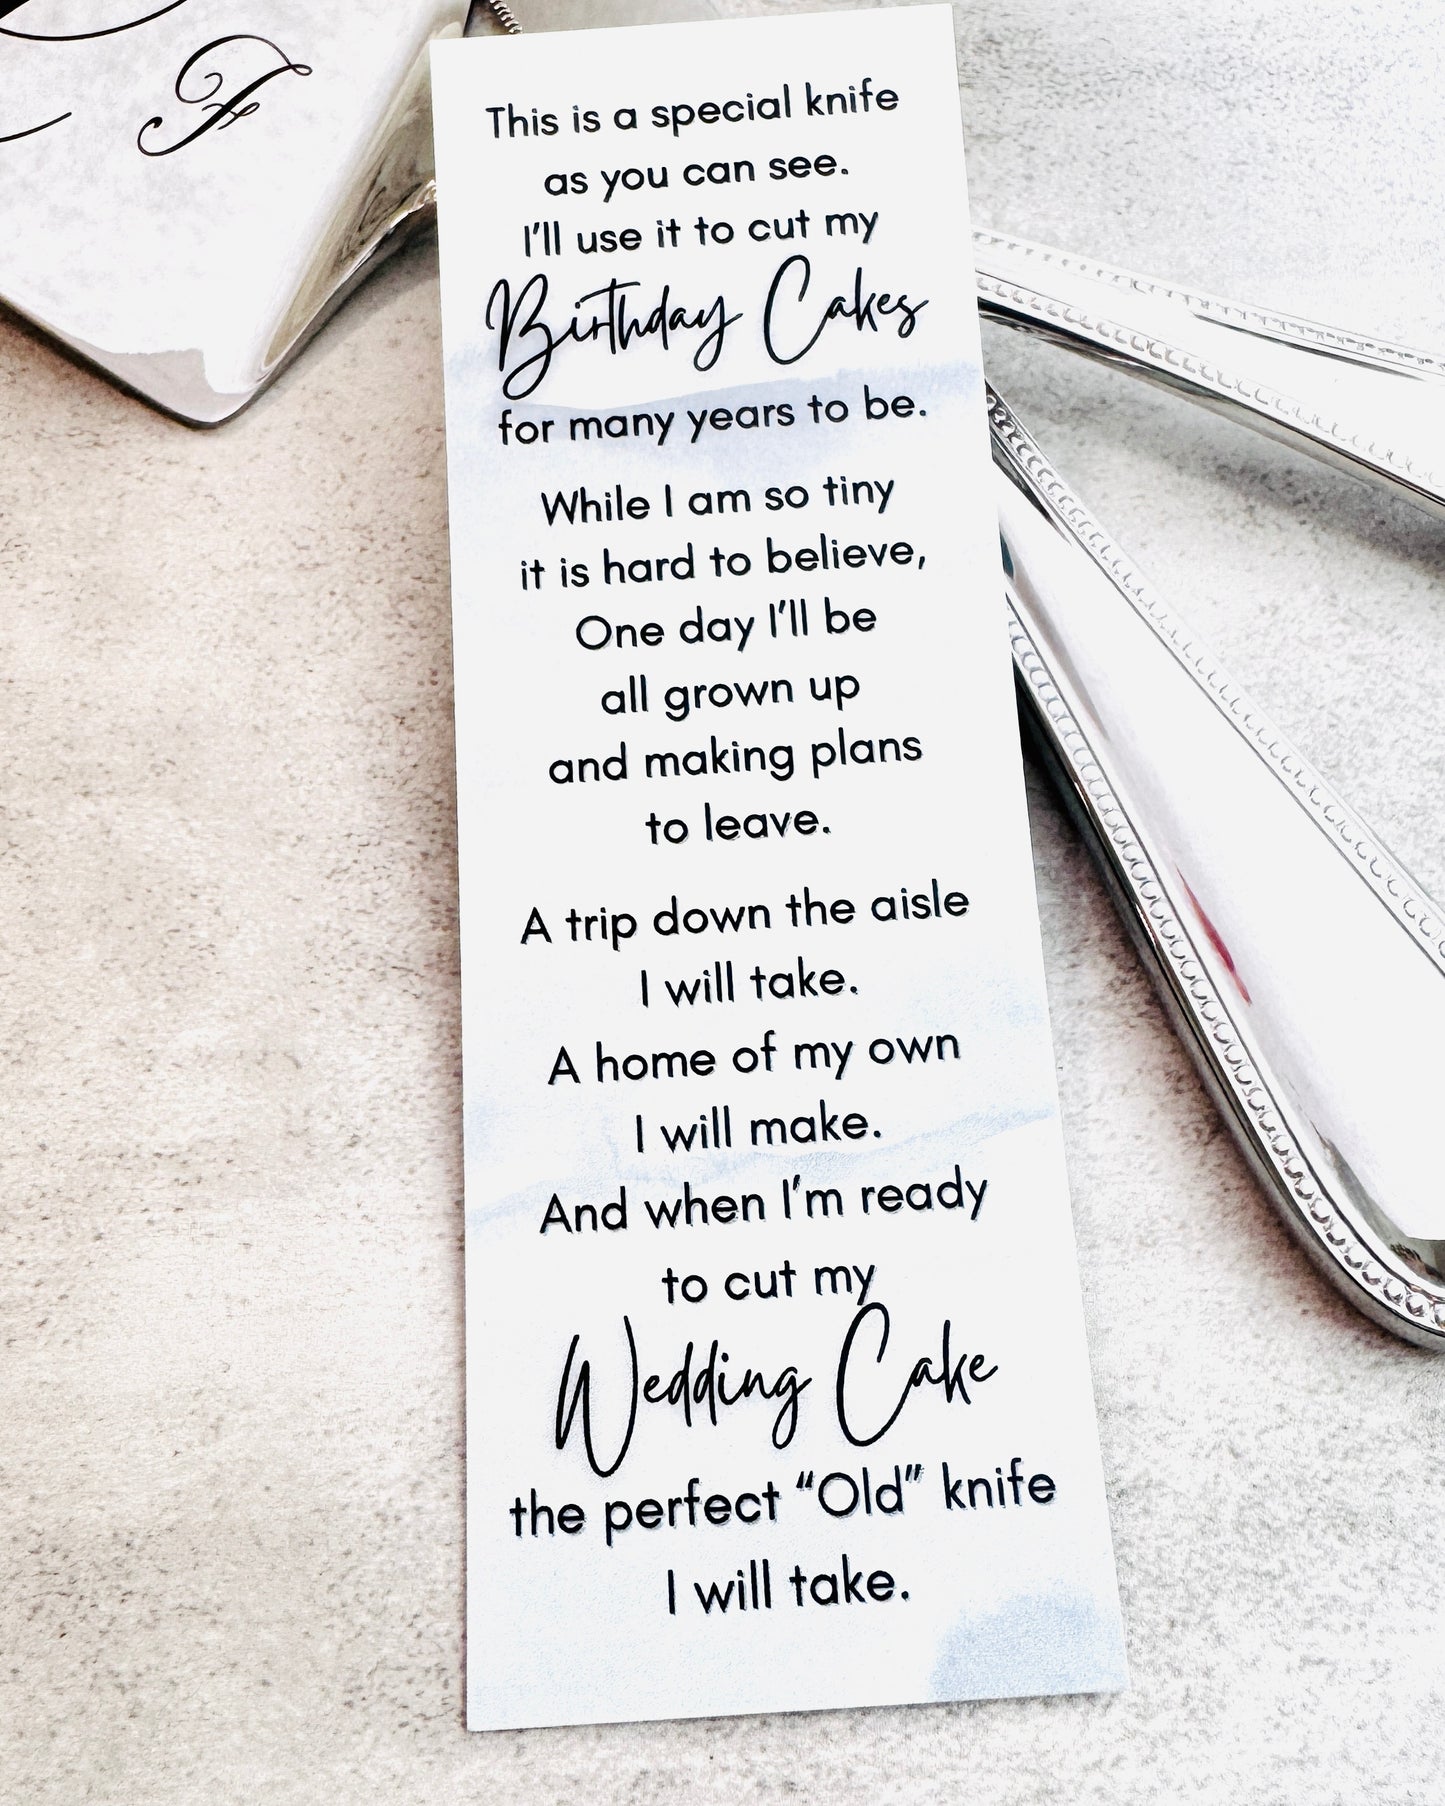 F
This is a special knife
as you can see.
I'll use it to cut my
Birthday Cakes
for many years to be.
While I am so tiny
it is hard to believe,
One day I'll be
all grown up
and making plans
to leave.
A trip down the aisle
I will take.
A home of my own
I will make.
And when I'm ready
to cut my
Wedding Cake
the perfect "Old" knife
I will take.